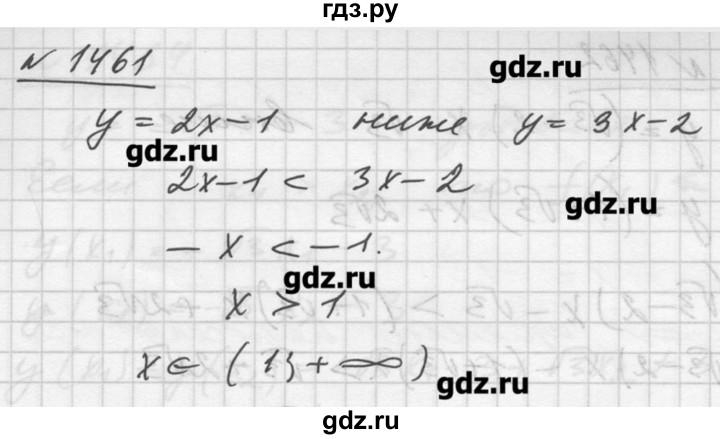 гдз.ру
№ 1461
gdz.ru
y = 2x - 1 ниже y = 3x - 2
gdz.ru
2x - 1 < 3x - 2
gdz.ru
- x < - 1.
gdz.ru
x > 1
x ∈ (1; + ∞)
gdz.ru
gdz.ru